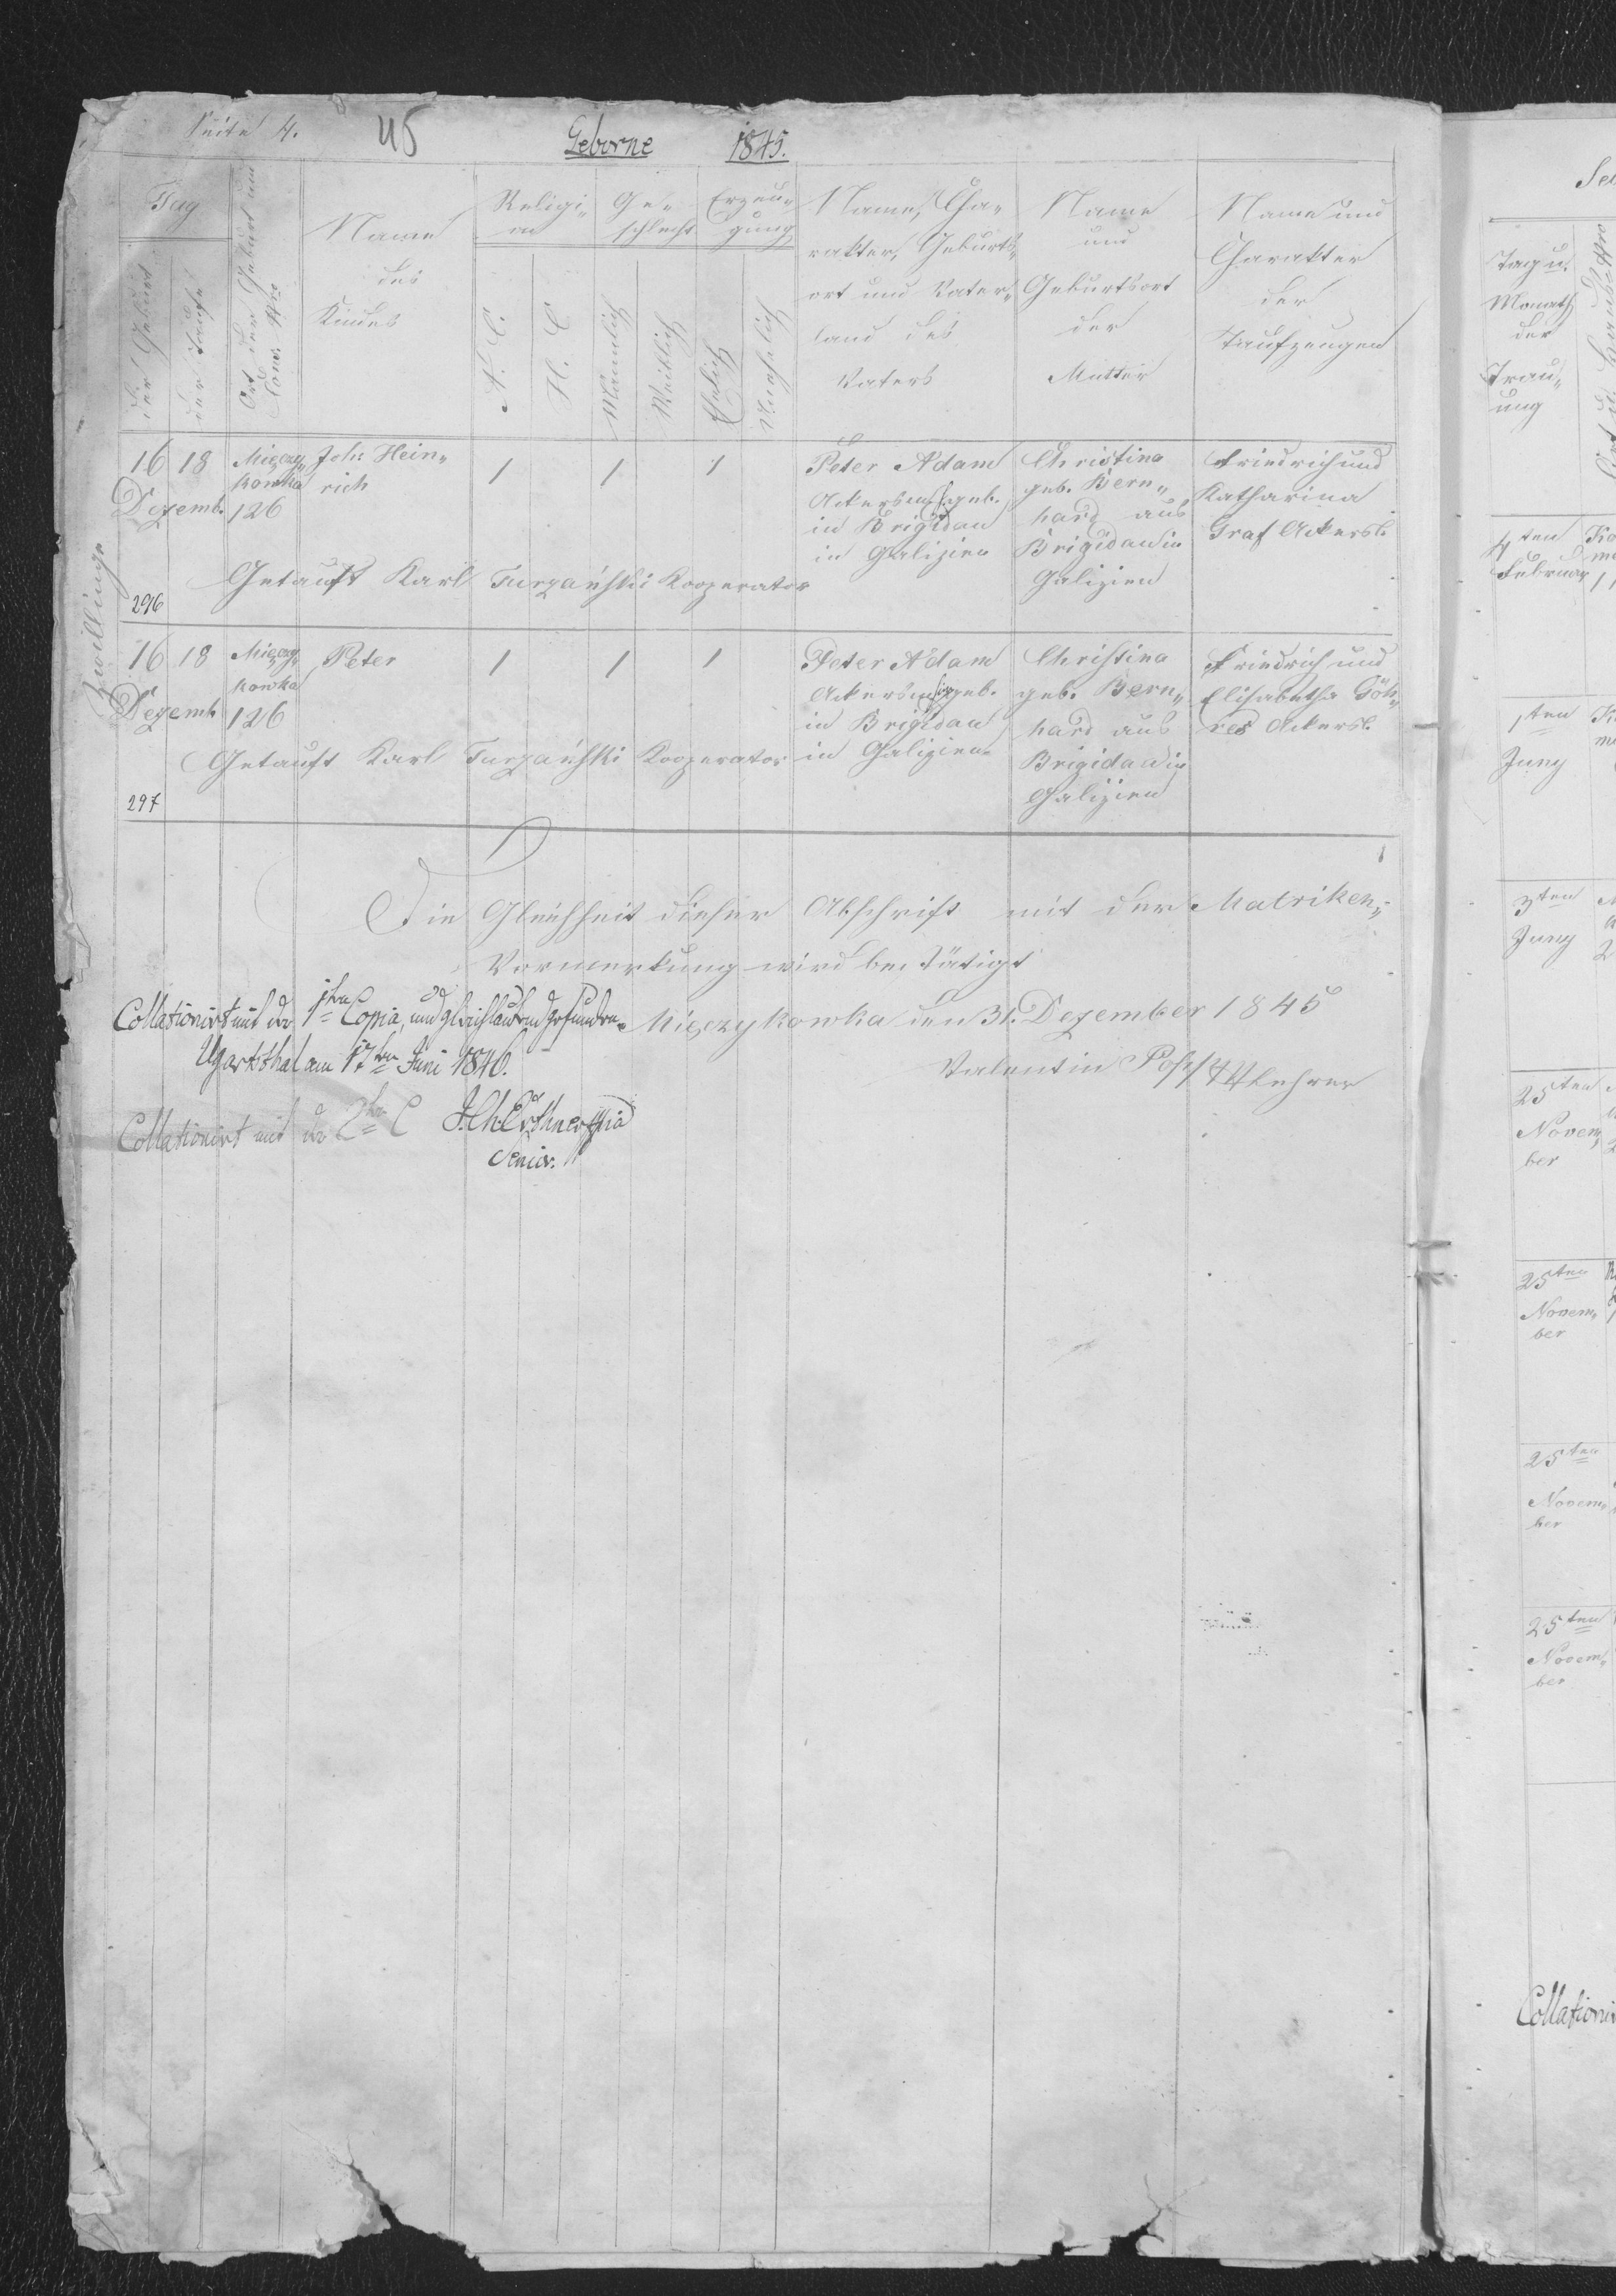 Seite 4.
45
Geborne 1845.
Tag
der Geburt
der Taufe
Ort der Geburt und
Cons. Nro
Name
des
Kindes
Religi„
on
A. C.
H. C.
Ge„
schlecht
Männlich
Weiblich
Erzeu„
gung
Ehelich
Unehelich
Name, Cha„
rakter, Geburts„
ort und Vater„
land des
Vaters
Name
und
Geburtsort
der
Mutter
Name und
Charakter
der
Taufzeugen
Zwillinge
16 18 Mięczy„ Joh: Hein„ 1 1 1
kowka rich
Dezemb. 126
Peter Adam
geb.
in Brigidau
in Galizien
Christina
geb. Bern„
hard aus
Brigidau in
Galizien
Friedrich und
Katharina
Graf Ackersl.
Getauft Karl Turzański Kooperator
296
16 18 Mięczy„ Peter 1 1 1
kowka
Dezemb 126
Peter Adam
geb.
in Brigidau
in Galizien
Christina
geb. Bern„
hard aus
Brigidau in
Galizien
Friedrich und
Elisabetha Göh„
res Ackersl.
Getauft Karl Turzański Kooperator
297
Die Gleichheit dieser Abschrift mit der Matriken„
Vormerkung wird bestätigt
Mięczykowka den 31. Dezember 1845
Valentin Popp Lehrer
Collationirt mit der 1ten Copia, und gleichlautend gefunden.
Ugartsthal am 17ten Juni 1846.
Collationirt mit der 2ten C
Senior.
Tag u.
Monath
der
Trau„
ung
4ten
Februar
1ten
Juny
3ten
Juny
25ten
Novem„
ber
25ten
Novem„
ber
25ten
Novem„
ber
25ten
Novem„
ber